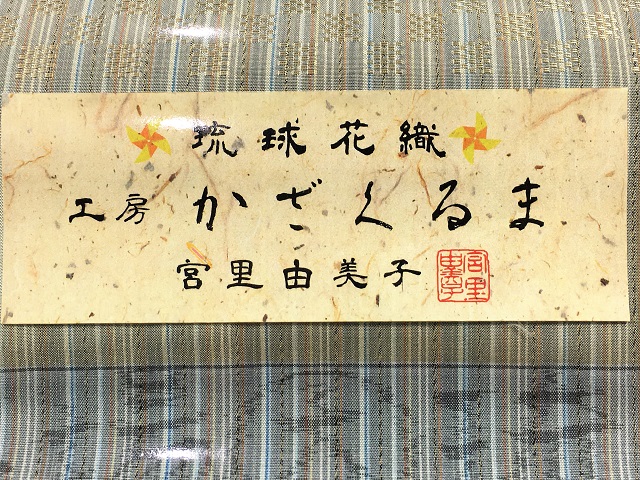 琉球花織
工房 かざぐるま
宮里由美子
宮里由美子